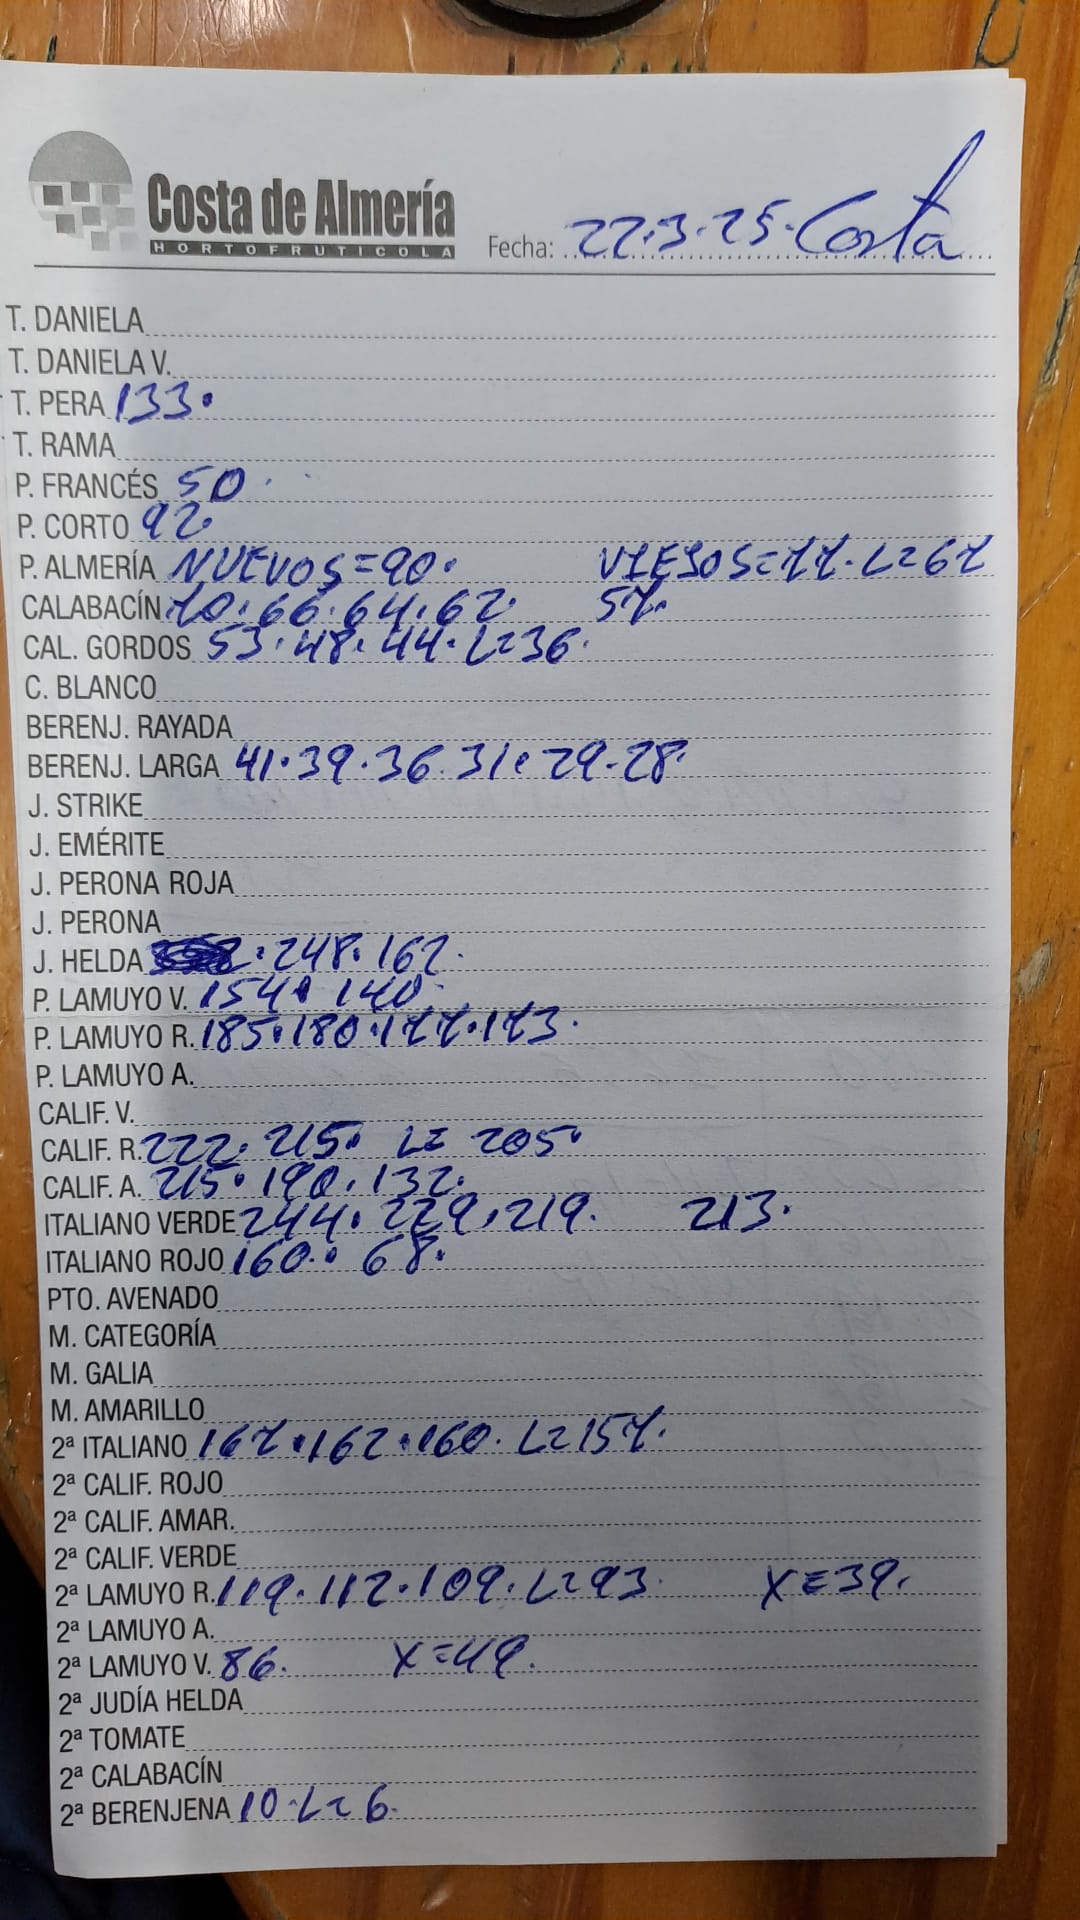 Costa de Almería
HORTOFRUTICOLA
Fecha: 22.3.25. Costa
T. DANIELA
T. DANIELA V.
T. PERA 133.
T. RAMA
P. FRANCÉS 50.
P. CORTO 92.
P. ALMERÍA NUEVOS=90. VIEJOS=77. L=67
CALABACÍN 70. 66. 64. 62. 57.
CAL. GORDOS 53. 48. 44. L=36.
C. BLANCO
BERENJ. RAYADA
BERENJ. LARGA 41. 39. 36. 31. 29. 28.
J. STRIKE
J. EMÉRITE
J. PERONA ROJA
J. PERONA
J. HELDA . 248. 162.
P. LAMUYO V. 154. 140.
P. LAMUYO R. 185. 180. 177. 173.
P. LAMUYO A.
CALIF. V.
CALIF. R. 222. 215. L= 205.
CALIF. A. 215. 190. 132.
ITALIANO VERDE 244. 229. 219. 213.
ITALIANO ROJO 160. 68.
PTO. AVENADO
M. CATEGORÍA
M. GALIA
M. AMARILLO
2ª ITALIANO 167. 162. 160. L=157.
2ª CALIF. ROJO
2ª CALIF. AMAR.
2ª CALIF. VERDE
2ª LAMUYO R. 119. 112. 109. L=93. X=39.
2ª LAMUYO A.
2ª LAMUYO V. 86. X=49.
2ª JUDÍA HELDA
2ª TOMATE
2ª CALABACÍN
2ª BERENJENA 10. L=6.